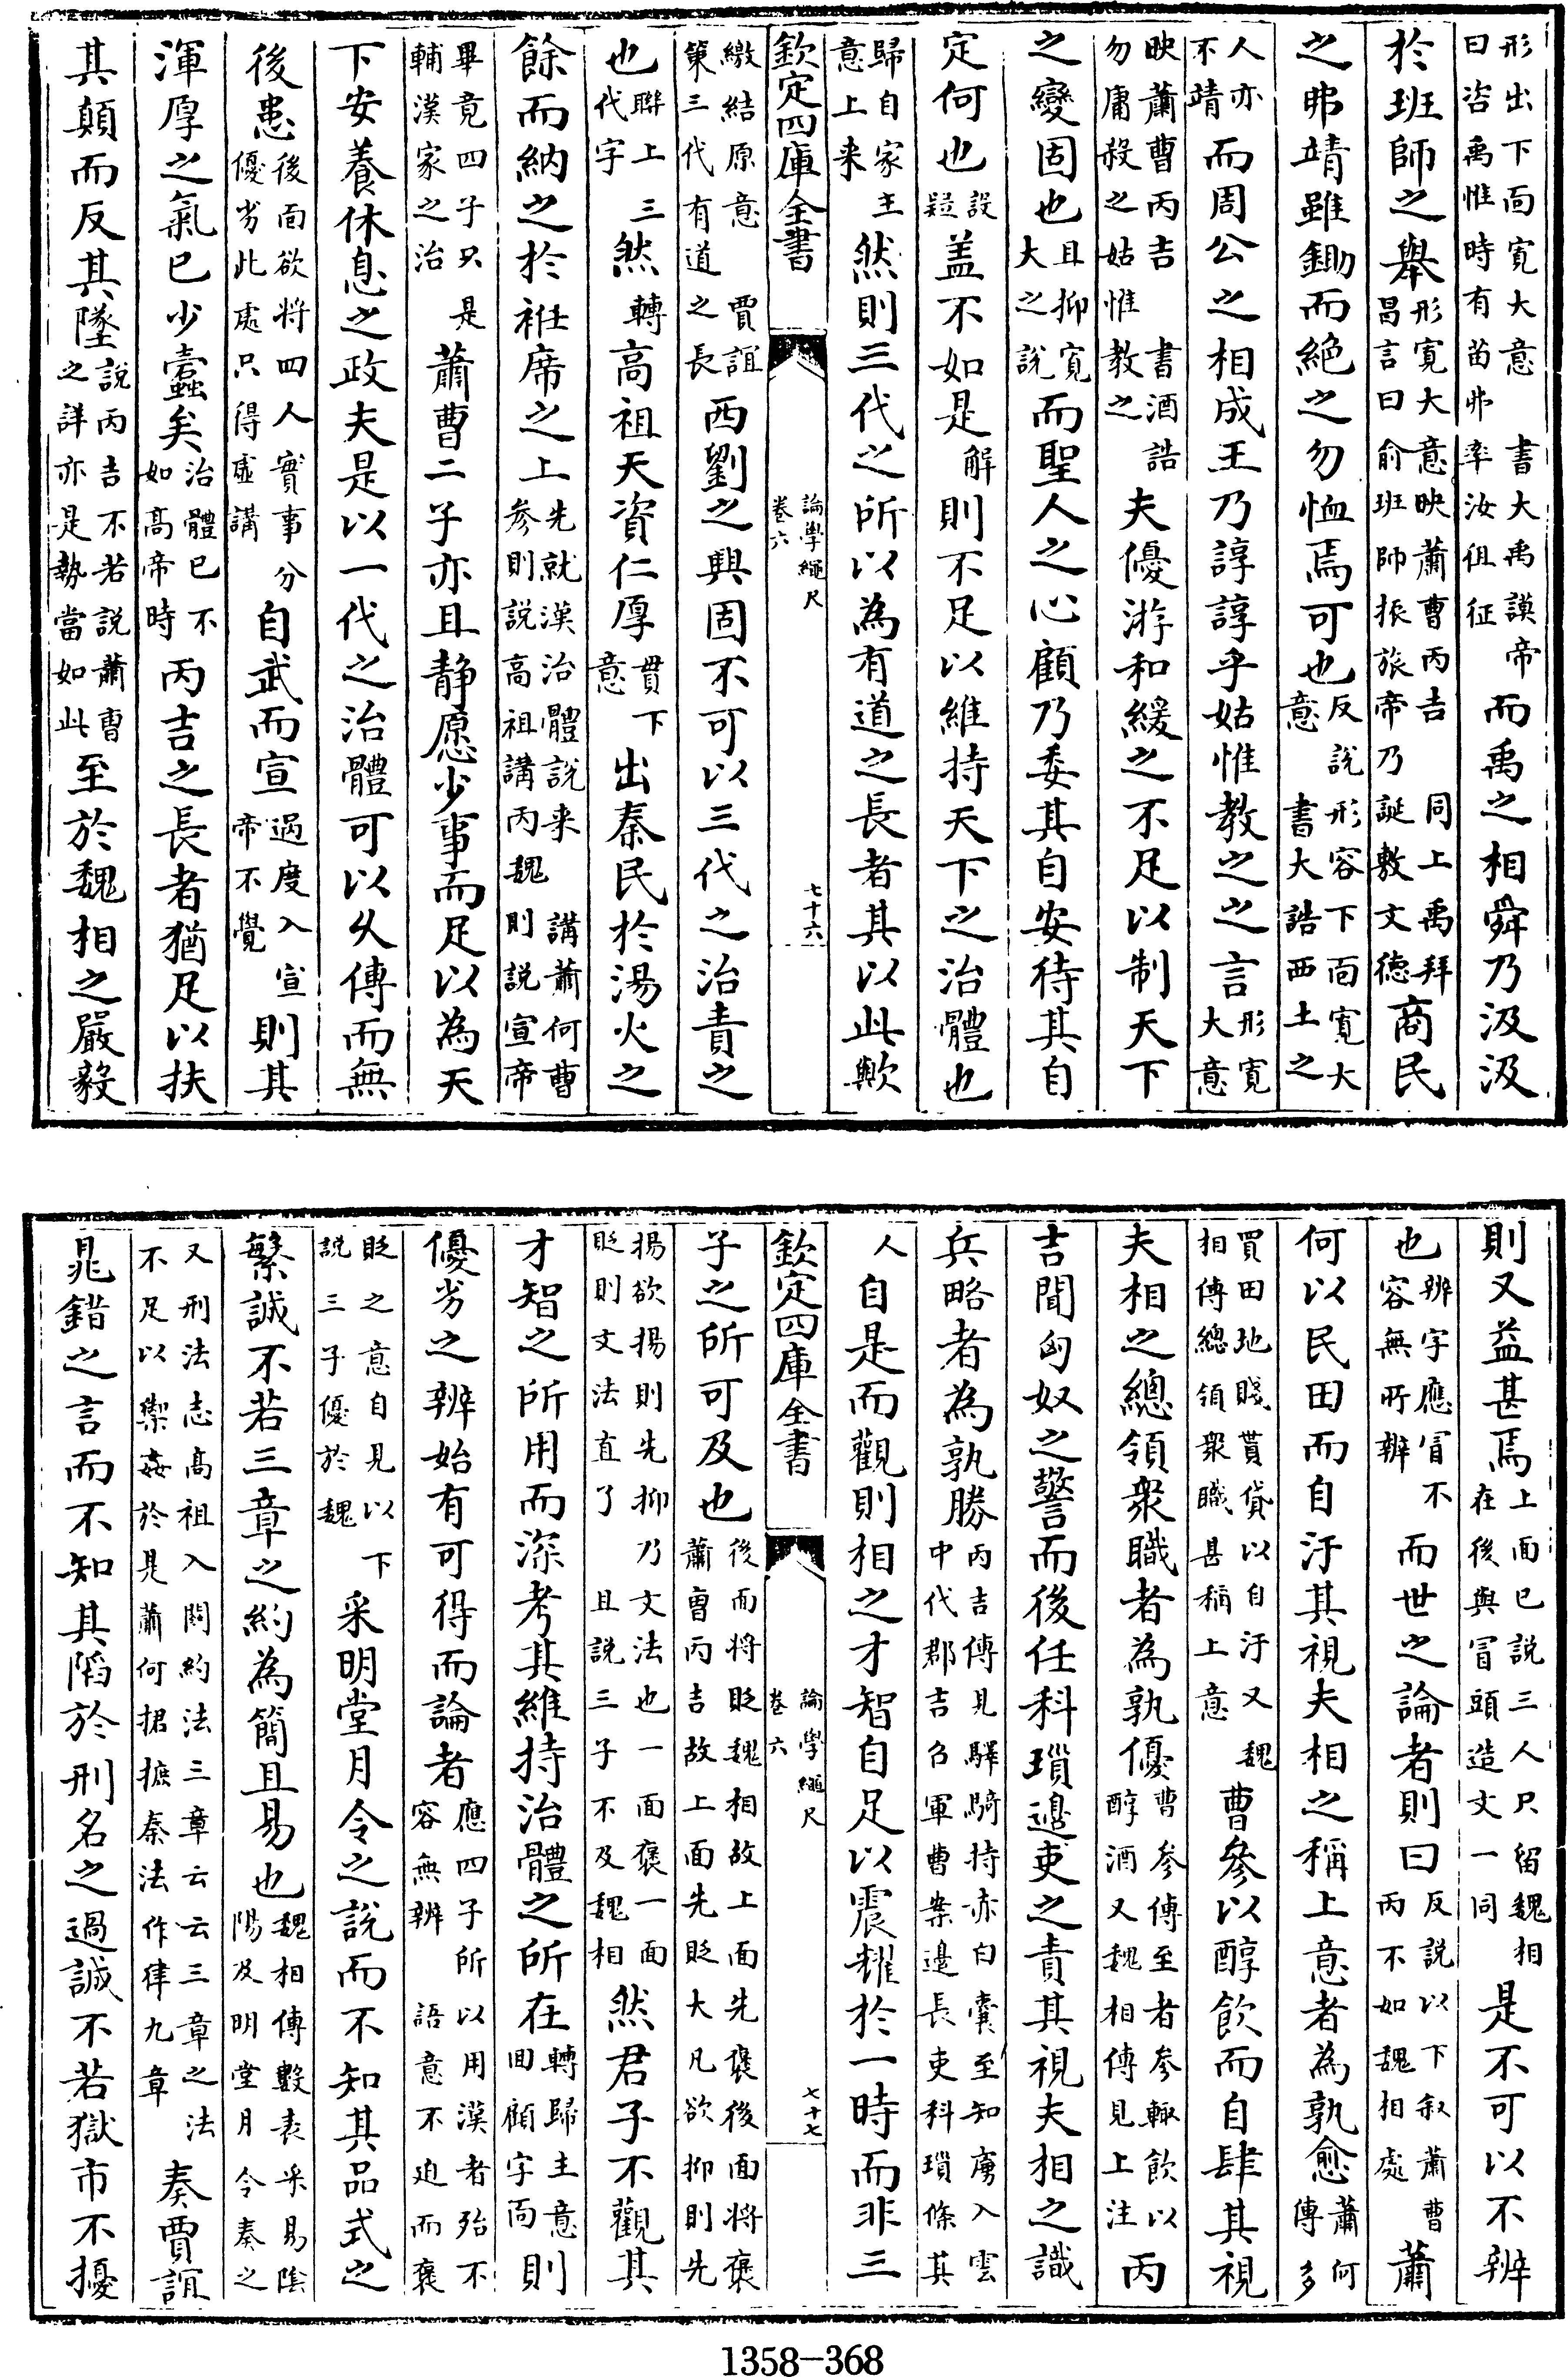 形出下面寛大意 書大禹謨帝曰咨禹惟時有苗弗率汝徂征而禹之相舜乃汲汲
於班師之舉形寛大意映蕭曹丙吉 同上禹拜昌言曰俞班師振旅帝乃誕敷文徳商民
之弗靖雖鋤而絶之勿恤焉可也反說形容下面寛大意 書大誥西土之
人亦不靖而周公之相成王乃諄諄乎姑惟教之之言形寛大意
映蕭曹丙吉 書酒誥勿庸殺之姑惟教之夫優游和緩之不足以制天下
之變固也且抑寛大之說而聖人之心顧乃委其自安待其自
定何也設疑盖不如是解則不足以維持天下之治體也
歸自家主意上来然則三代之所以為有道之長者其以此歟
欽定四庫全書 論學繩尺 卷六 七十六
繳結原意 賈誼策三代有道之長西劉之興固不可以三代之治責之
也聨上三代字然轉高祖天資仁厚貫下意出秦民於湯火之
餘而納之於袵席之上先就漢治體說来 講蕭何曹參則說高祖講丙魏則說宣帝
畢竟四子只是輔漢家之治蕭曹二子亦且静愿少事而足以為天
下安養休息之政夫是以一代之治體可以久傳而無
後患後面欲將四人實事分優劣此處只得虛講自武而宣過度入宣帝不覺則其
渾厚之氣已少蠧矣治體已不如高帝時丙吉之長者猶足以扶
其顛而反其墜說丙吉不若說蕭曹之詳亦是勢當如此至於魏相之嚴毅
則又益甚焉上面已說三人只留魏相在後與冒頭造文一同是不可以不辨
也辨字應冒不容無所辨而世之論者則曰反說以下叙蕭曹丙不如魏相處蕭
何以民田而自汙其視夫相之稱上意者為孰愈蕭何傳多
買田地賤貰貸以自汙又魏相傳總領衆職甚稱上意曹參以醇飲而自肆其視
夫相之總領衆職者為孰優曹參傳至者參輙飲以醇酒又魏相傳見上注丙
吉聞匈奴之警而後任科瑣邉吏之責其視夫相之識
兵略者為孰勝丙吉傳見驛騎持赤白囊至知虜入雲中代郡吉召軍曹案邉長吏科瑣條其
人自是而觀則相之才智自足以震耀於一時而非三
欽定四庫全書 論學繩尺 卷六 七十七
子之所可及也後而將貶魏相故上面先褒後面將褒蕭曹丙吉故上面先貶大凡欲抑則先
揚欲揚則先抑乃文法也一面褒一面貶則文法直了 且說三子不及魏相然君子不觀其
才智之所用而深考其維持治體之所在轉歸主意回顧字面則
優劣之辨始有可得而論者應四子所以用漢者殆不容無辨 語意不迫而褒
貶之意自見以下說三子優於魏采明堂月令之說而不知其品式之
繁誠不若三章之約為簡且易也魏相傳數表采易陰陽及明堂月令奏之
又刑法志高祖入關約法三章云云三章之法不足以禦姦於是蕭何捃摭秦法作律九章奏賈誼
晁錯之言而不知其陷於刑名之過誠不若獄市不擾
1358-368